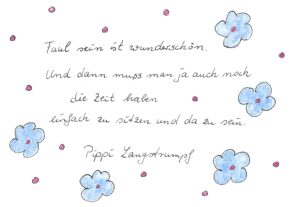 Faul sein ist wunderschön.
Und dann muss man ja auch noch
die Zeit haben
einfach zu sitzen und da zu sein.
Pippi Langstrumpf